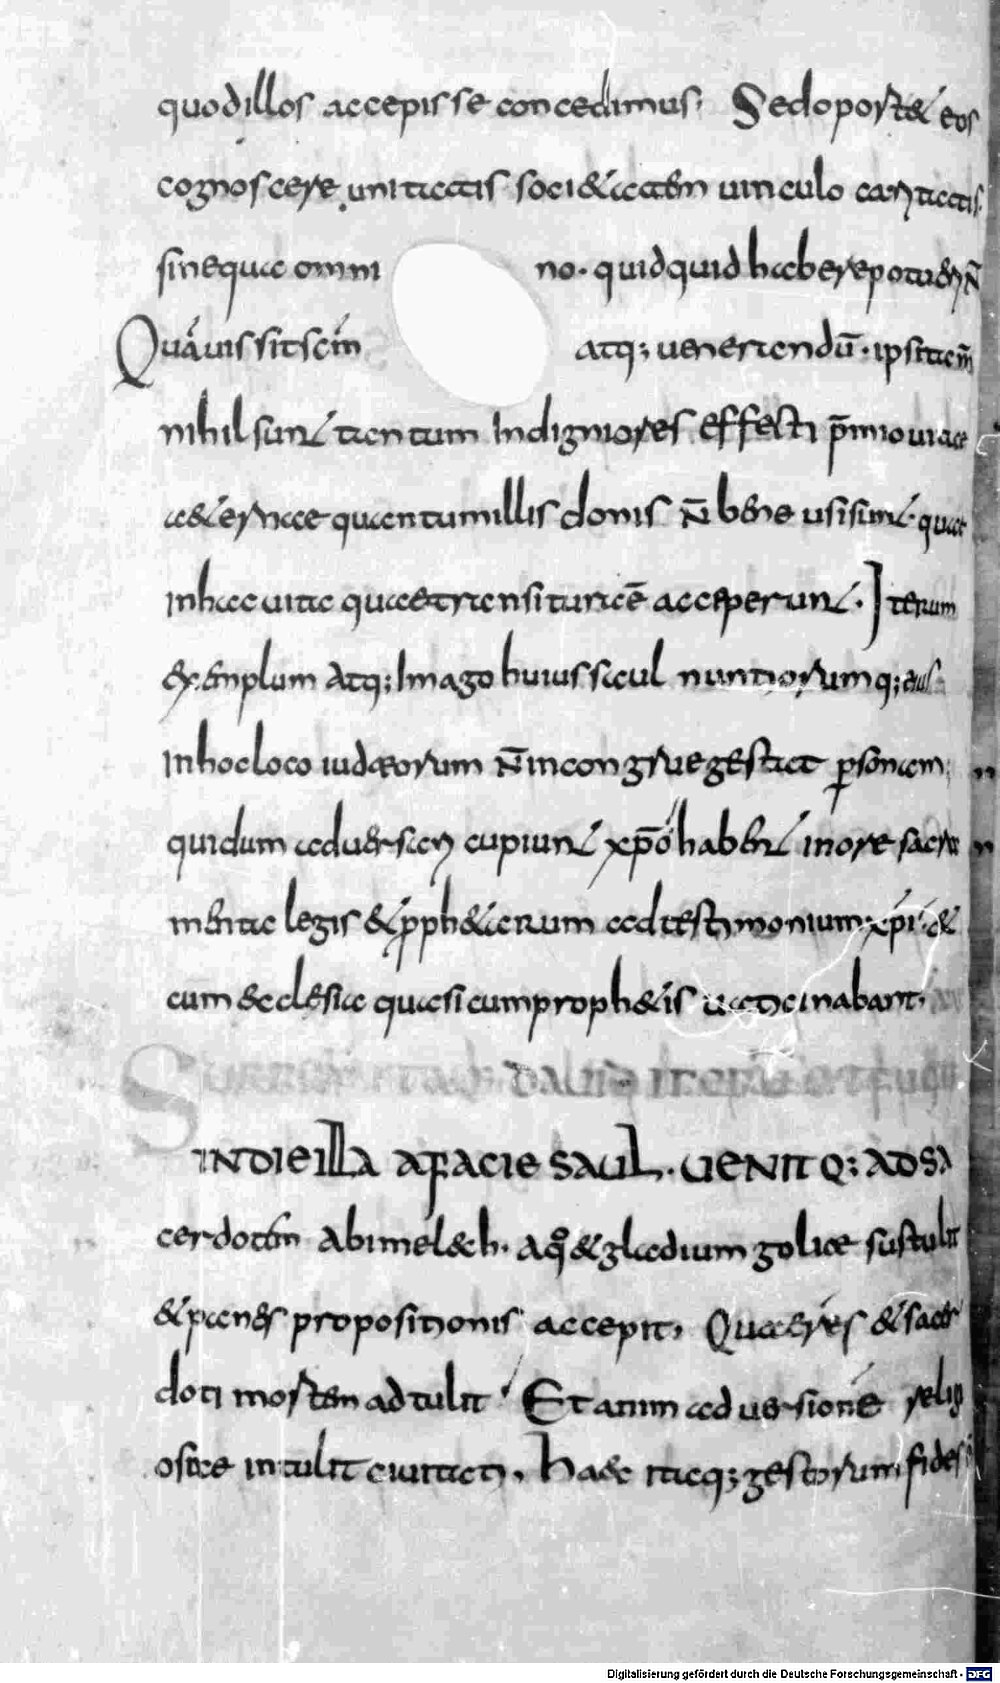 quod illos accepisse concedimus; Sed oportet eos
cognoscere unitatis societatem uinculo caritatis.
sine qua omni no. quidquid habere potuerint n̄
Quāuis sit sc̄m atq; uenerandū. ipsi tam̄
nihil sunt tantum Indigniores effecti p̄mio uitae
aeternae quantum illis donis n̄ bene usi sunt. quae
in hac uita quae transitura ē acceperunt. Iterum
exemplum atq; Imago huius saul nuntiorumq; eius
in hoc loco iudæorum n̄ incongrue gestat p̱sonam
qui dum aduersari cupiunt xp̄o habent in ore sacra
menta legis & pphetarum ad testimonium xp̄i. &
cum ecclesia quasi cum prophetis uaticinabant,
IN DIE ILLA A FACIE SAUL. UENITQ; AD SA
cerdotem abimelech. A q̊ & gladium goliae sustulit
& panes propositionis accepit, Quae res & sacer
doti mortem adtulit Etiam aduersionē relig
osae intulit ciuitati, haec itaq; gestorum fides
Digitalisierung gefördert durch die Deutsche Forschungsgemeinschaft - DFG